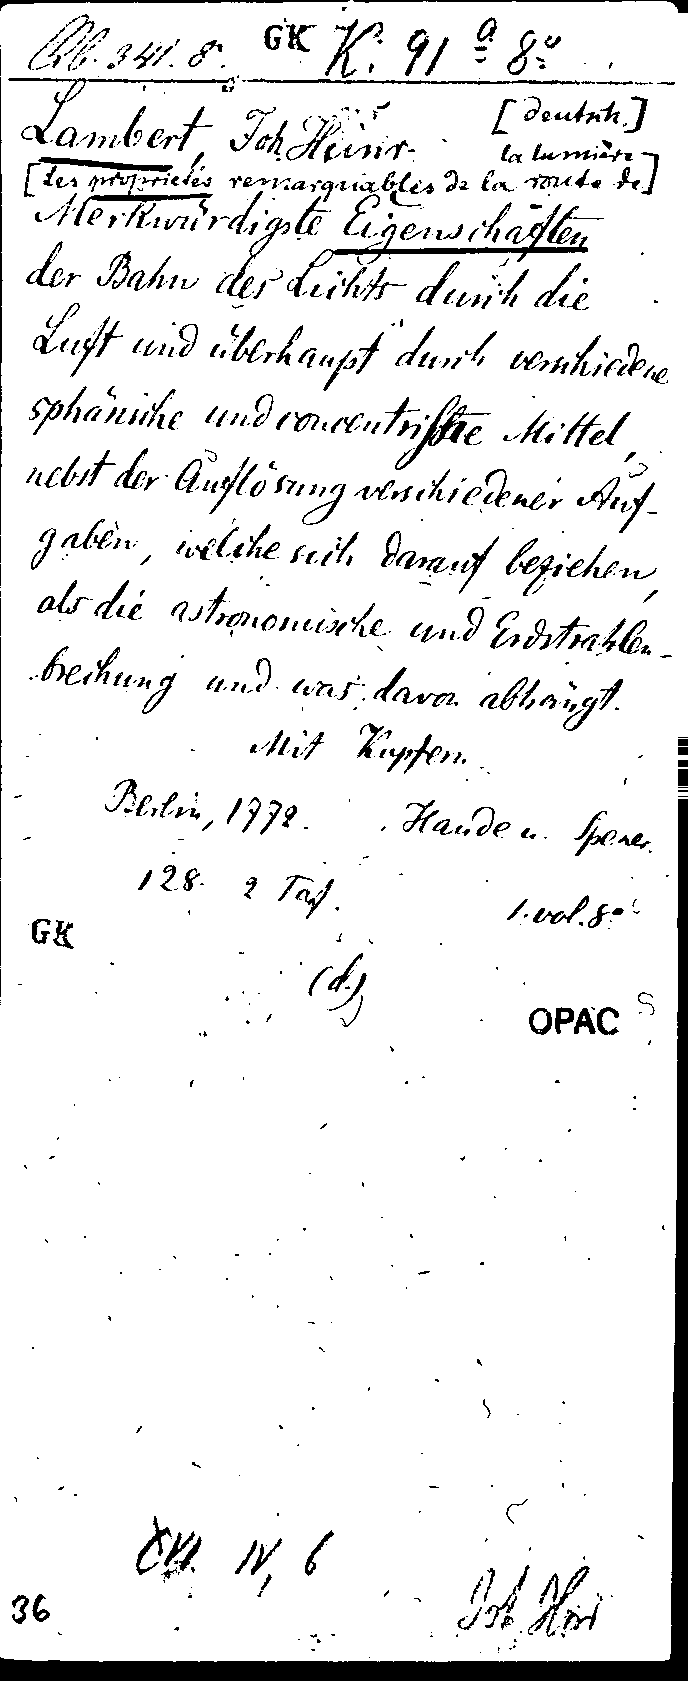 341. 8°. GK K. 91 a 8°
Lambert, Joh. Heinr. [deutsch.]
[Les propriétés remarquables de la route de la lumière]
Merkwürdigste Eigenschaften
der Bahn des Lichts durch die
Luft und überhaupt durch verschiedene
sphärische und concentrische Mittel,
nebst der Auflösung verschiedener Auf-
gaben, welche sich darauf beziehen,
als die astronomische und Erdstrahlen-
brechung und was davon abhängt.
Mit Kupfern.
Berlin, 1772. Haude u. Spener.
128. 2 Taf. 1. vol. 8°
GK
(d.)
OPAC
IV, 6
36
Joh. Heinr